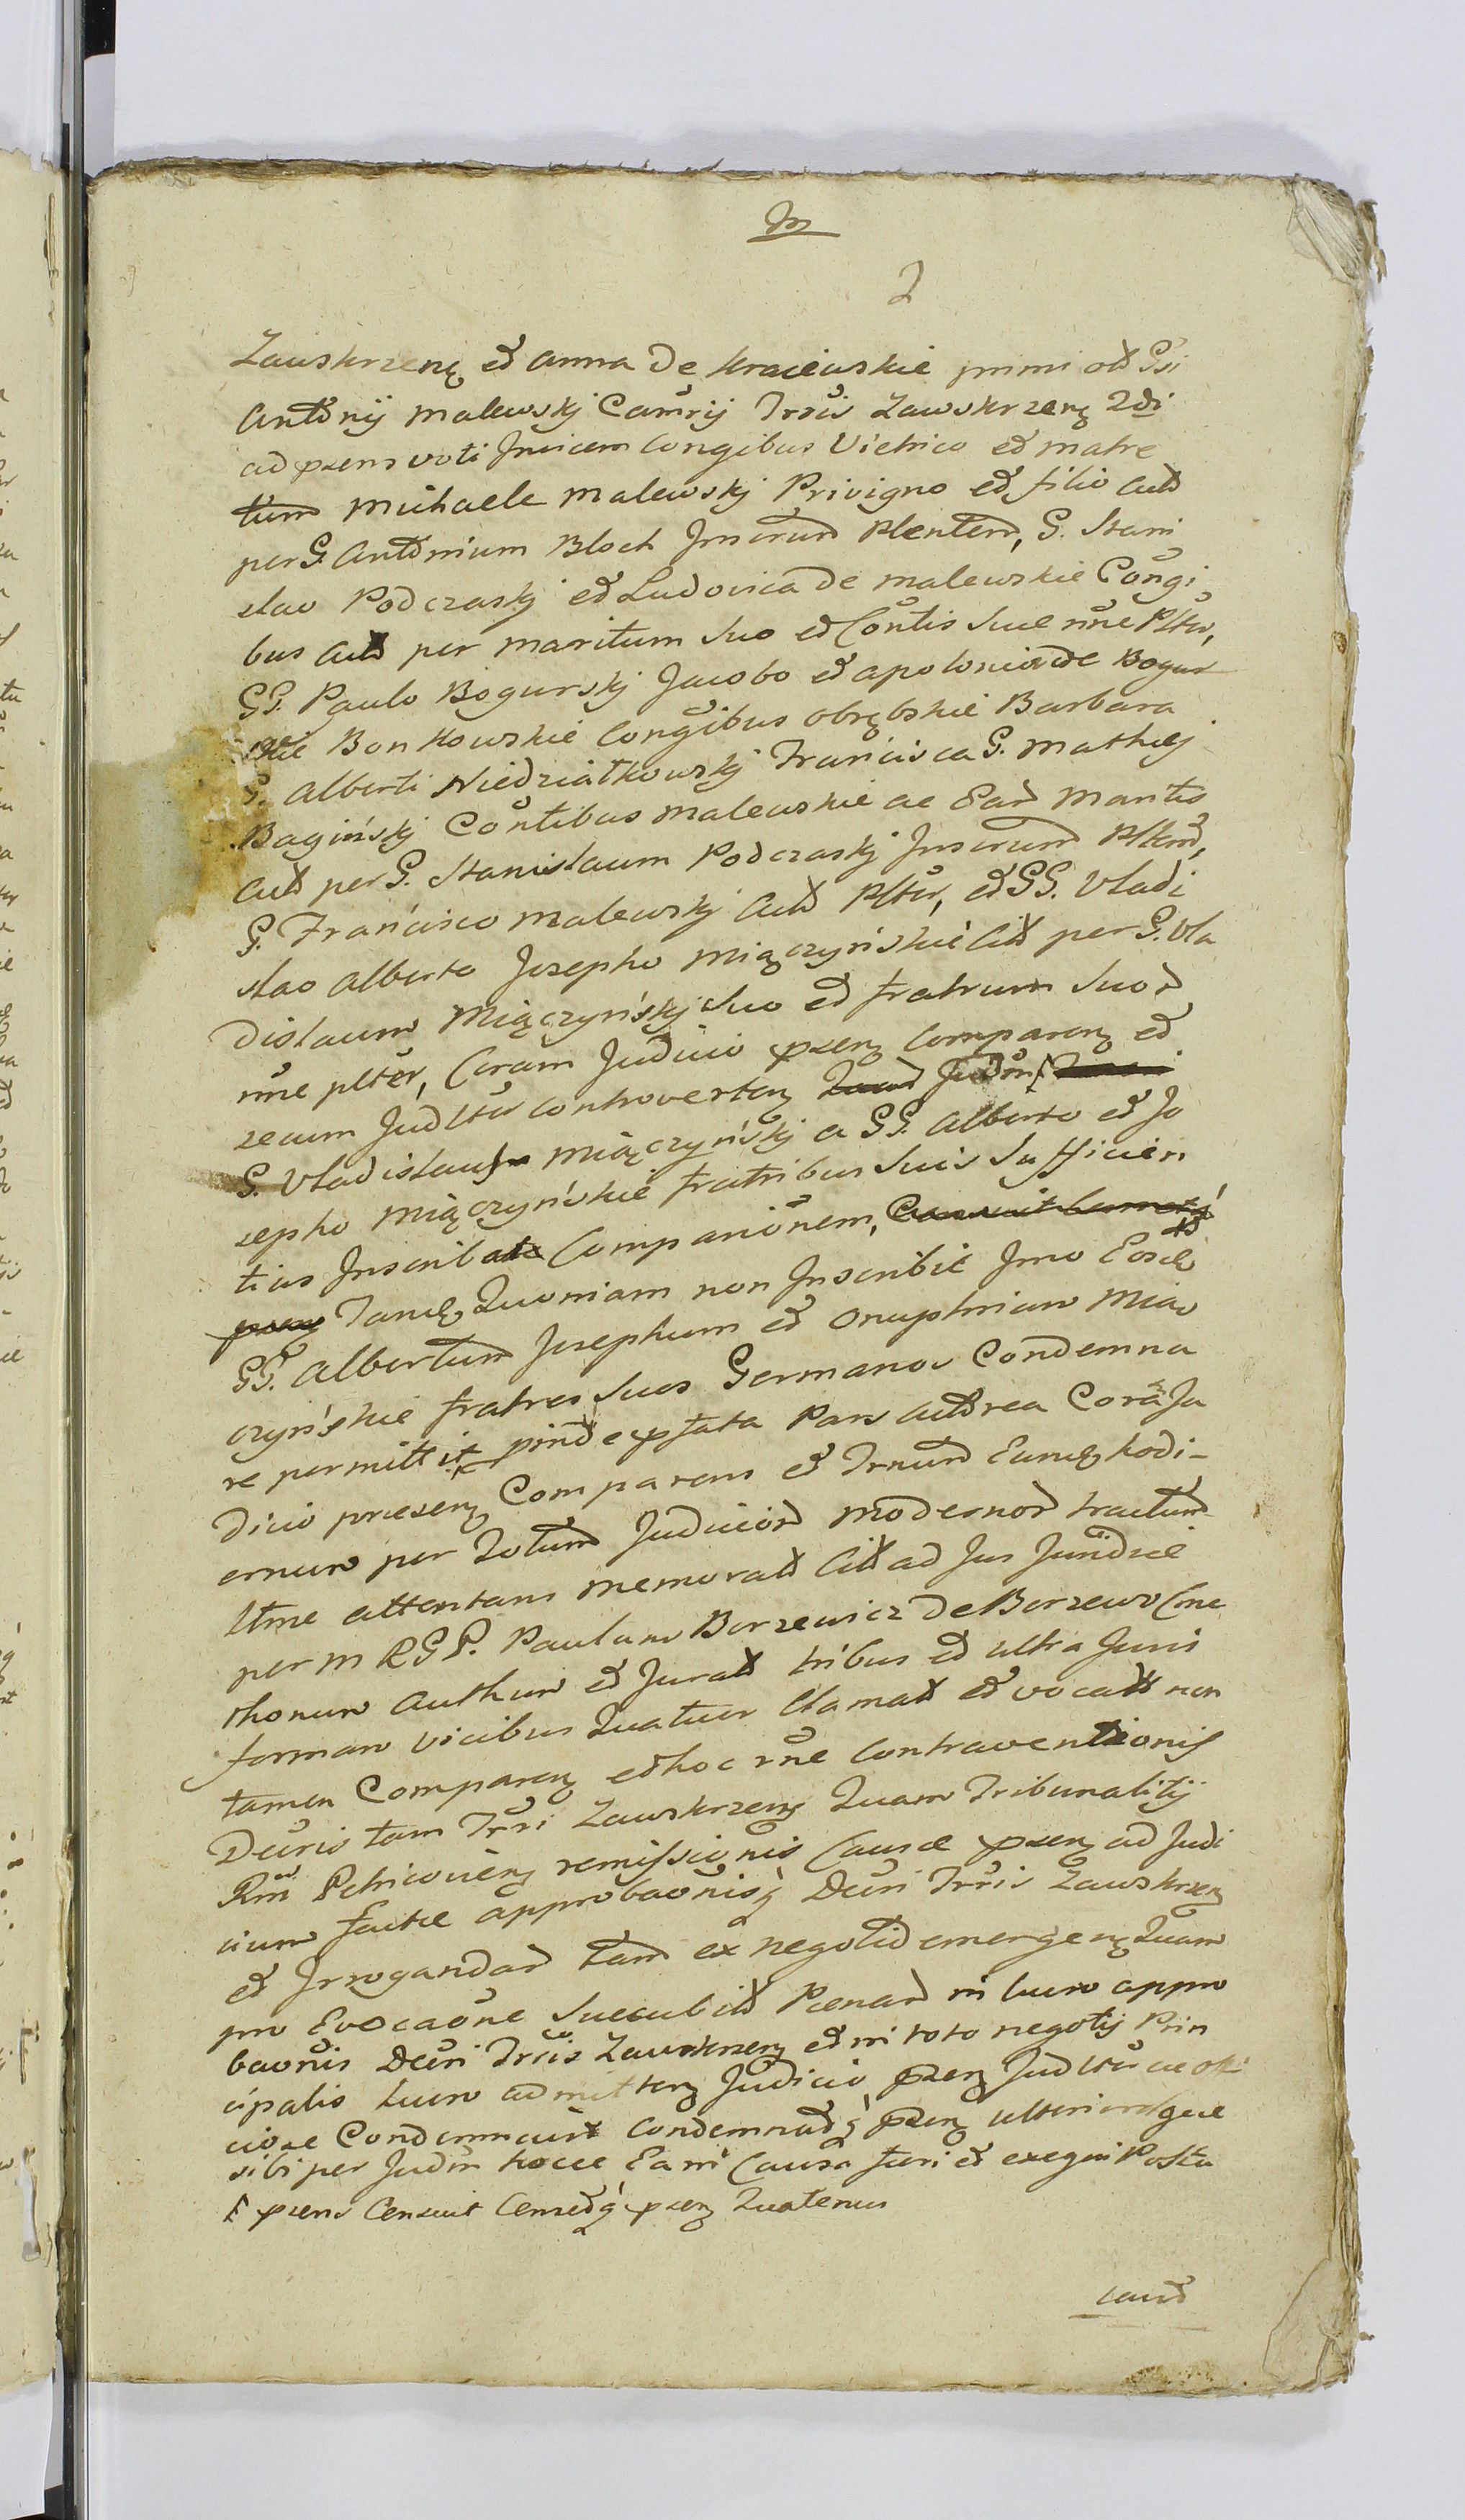 m
2
Zawskrzenę et Anna de Kraiewskie primi ott Gsi
Antonij Malewskj Camrij Trris Zawskrzenę 2di
ad psens voti Invicem Congibus Vietrico et matre
tum Michaele Malewskj Privigno et filio Citt
per G. Antonium Bloch Inscrum Plentem, G. Stani
slao Podczaskj et Ludovica de Malewskie Congi
bus Citt per maritum suo et Contis suae nne Plter,
GG. Paulo Bogurskj Jacobo et Apolonia de Bogur
skie Bonkowskie Congibus Obrębskie Barbara
G. Alberti Niedziałkowskj Francisca G. Mathiej
Bagińskj Contibus Malewskie ac Ear Mantis
Citt per G. Stanislaum Podczaskj Inscrum Pltem,
G. Francisco Malewskj Citt Plter, et GG. Vladi
slao Alberto Josepho Miączyńskie Citt per G. Vla
dislaum Miączyńskj suo et fratrum suor
nne plter, Coram Judicio psenę Comparenę et
secum Judlter Controvertenę Judm
G. Vladislaus Miączyńskj a GG. Alberto et Jo
sepho Miączyńskie fratribus suis sufficien
tius Inscribat Comparionem, Censuit Censetq
psenę Tamę Quoniam non Inscribit Imo Eosdę
GG. Albertum Josephum et Onuphrium Mią
czyńskie fratres suos Germanos Condemna
re permittit pinde pfata Pars Actorea Cora Ju
dicio praesenę Comparens et Trnum Eumę hodi-
ernum per Totum Judicior modernor tractum
ltme attentans memoratt Citt ad Jus Juridice
per M R G P. Paulum Borzewicz de Borzewo Cme
rhonum Authum et Juratt tribus et ultra Juris
formam vicibus Quatuor Clamatt et vocatt non
tamen Comparenę ethoc rne Contraventionis
Decris tam Trri Zawskrzenę Quam Tribunalitij
Rni Petricovienę remissionis Causae psenę ad Judi
cium factae approbaonisq Decri Trris Zawskrzenę
et Irrogandar tam ex negotio emergenę Quam
pro Evocaone succubitt Paenar in lucro appro
baonis Decri Trris Zawskrzenę et in toto negotij Prin
cipalis lucro admittenę Judicio psenę Judlter ac offi
ciose Condemnavit Condemnatq psenę ulteriorsque
sibi per Judm hocce Ea in Causa fieri et exequi Postu
psens Censuit Censetq psenę Quatenus
lavit